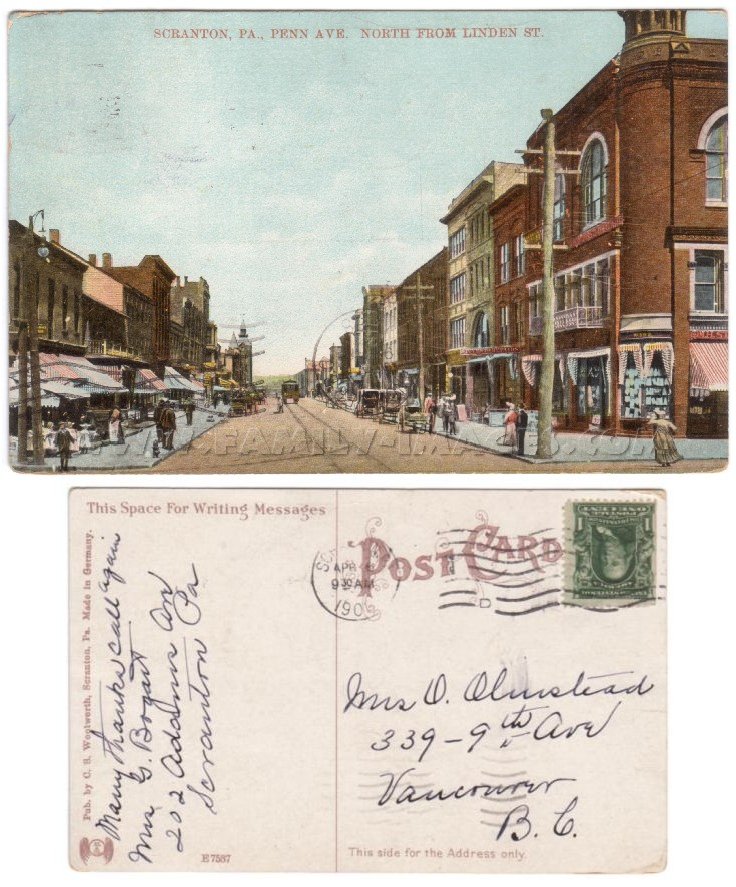 SCRANTON, PA., PENN AVE. NORTH FROM LINDEN ST.
This Space For Writing Messages
POST CARD
APR
9 30 AM
190
Many thanks call again
Mrs G. Bogart
202 Adams Av
Scranton Pa
Pub. by C. S. Woolworth, Scranton, Pa. Made in Germany.
Mrs O. Olmstead
339-9th Ave
Vancouver
B. C.
E7587
This side for the Address only.